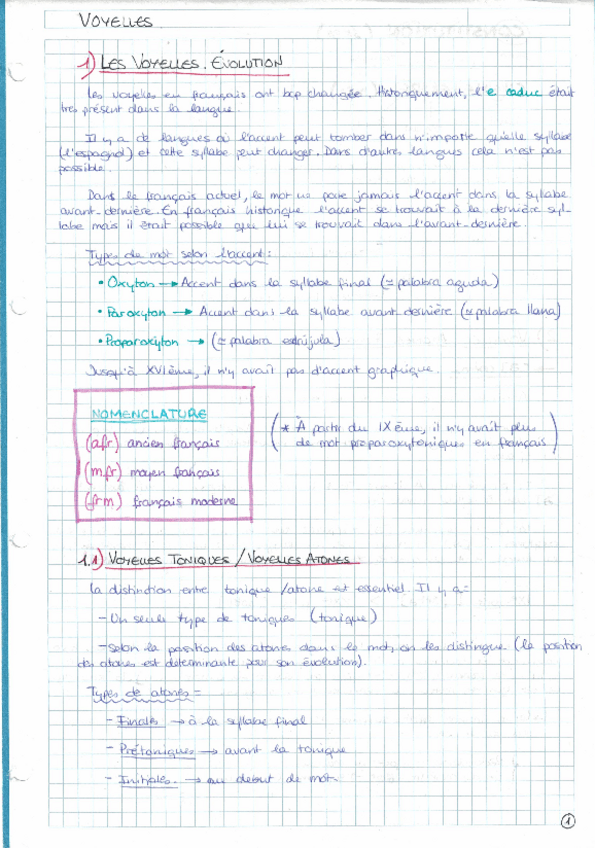 VOYELLES
1) LES VOYELLES. ÉVOLUTION
Les voyelles en français ont bcp changée. Historiquement, l'e caduc était
très présent dans la langue.
Il y a de langues où l'accent peut tomber dans n'importe qu'elle syllabe
(l'espagnol) et cette syllabe peut changer. Dans d'autres langues cela n'est pas
possible.
Dans le français actuel, le mot ne porte jamais l'accent dans la syllabe
avant-dernière. En français historique l'accent se trouvait à la dernière syl-
labe mais il était possible que lui se trouvait dans l'avant-dernière.
Types de mot selon l'accent:
• Oxyton → Accent dans la syllabe final (≃ palabra aguda)
• Paroxyton → Accent dans la syllabe avant dernière (≃ palabra llana)
• Proparoxyton → (≃ palabra esdrújula)
Jusqu'à XVIème, il n'y avait pas d'accent graphique.
NOMENCLATURE
(afr) ancien français
(mfr) moyen français
(frm) français moderne
(* À partir du IXème, il n'y avait plus
de mot proparoxytoniques en français)
1.1) VOYELLES TONIQUES / VOYELLES ATONES
La distinction entre tonique/atone est essentiel. Il y a:
- Un seule type de toniques (tonique)
- Selon la position des atones dans le mot, on les distingue (la position
des atones est determinante pour son évolution).
Types de atones =
- Finales → à la syllabe final
- Prétoniques → avant la tonique
- Initiales. → au debut de mot.
1